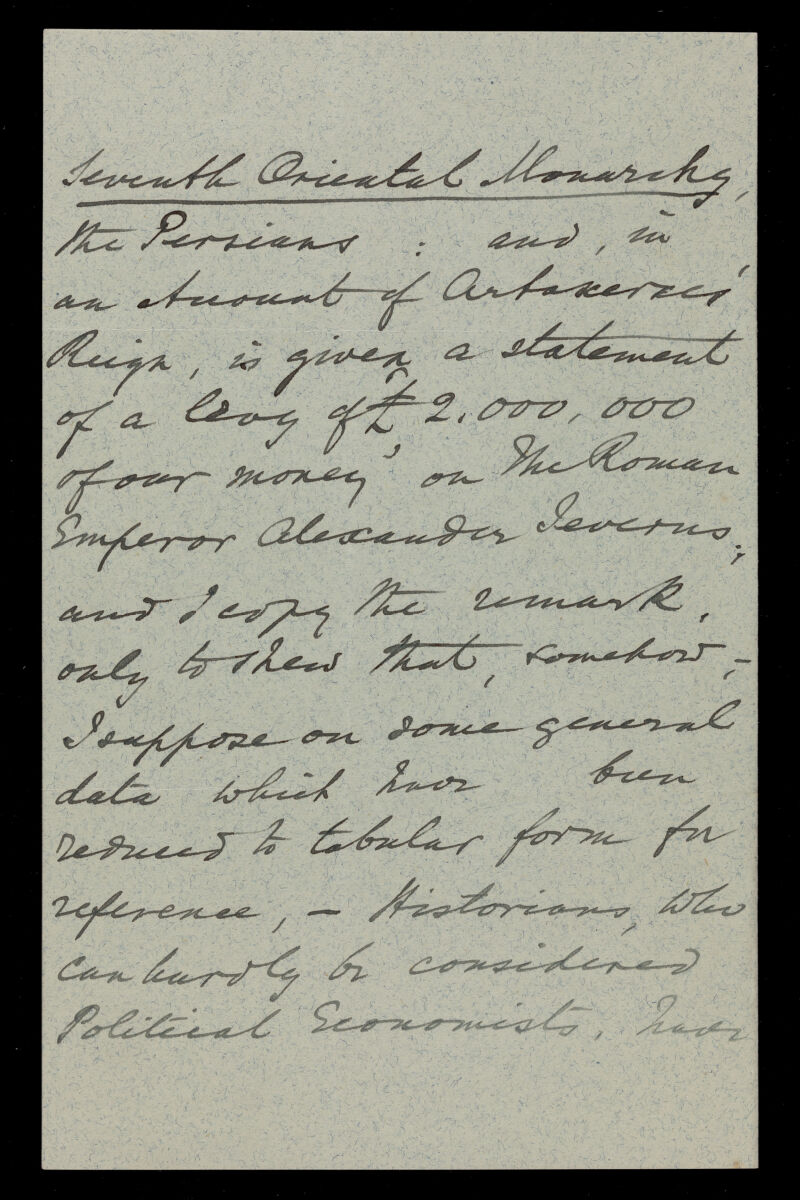 Seventh Oriental Monarchy,
the Persians : and, in
an Account of Artaxerxes'
Reign, is given a statement
of a levy of "£ 2.000,000
of our money" on the Roman
Emperor Alexander Severus;
and I copy the remark,
only to shew that, somehow, -
I suppose on some general
data which have been
reduced to tabular form for
reference, - Historians, who
can hardly be considered
Political Economists, have